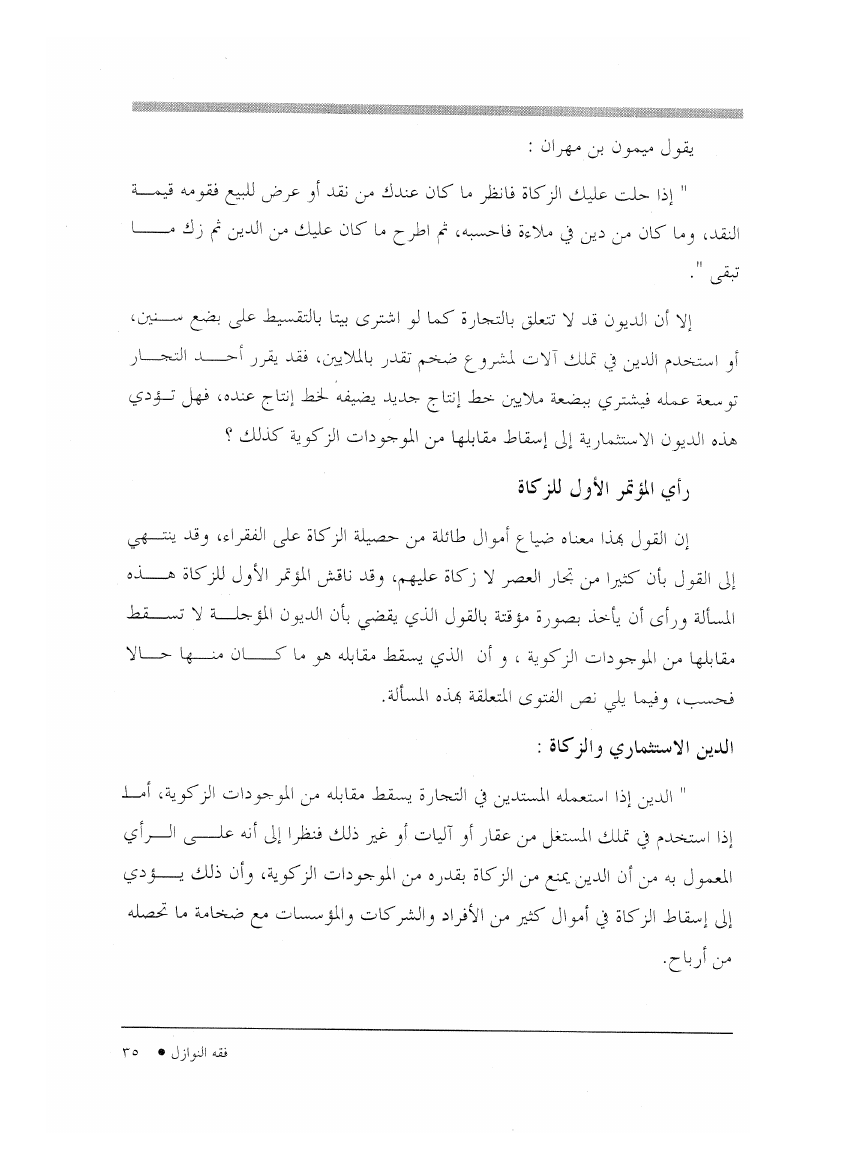 يقول ميمون بن مهران :
" إذا حلت عليك الزكاة فانظر ما كان عندك من نقد أو عرض للبيع فقومه قيمة
النقد، وما كان من دين في ملاءة فاحسبه، ثم اطرح ما كان عليك من الدين ثم زك ما
تبقى ".
إلا أن الديون قد لا تتعلق بالتجارة كما لو اشترى بيتا بالتقسيط على بضع سنين،
أو استخدم الدين في تملك آلات لمشروع ضخم تقدر بالملايين، فقد يقرر أحد التجار
توسعة عمله فيشتري ببضعة ملايين خط إنتاج جديد يضيفه لخط إنتاج عنده، فهل تؤدي
هذه الديون الاستثمارية إلى إسقاط مقابلها من الموجودات الزكوية كذلك ؟
رأي المؤتمر الأول للزكاة
إن القول بهذا معناه ضياع أموال طائلة من حصيلة الزكاة على الفقراء، وقد ينتهي
إلى القول بأن كثيرا من تجار العصر لا زكاة عليهم، وقد ناقش المؤتمر الأول للزكاة هذه
المسألة ورأى أن يأخذ بصورة مؤقتة بالقول الذي يقضي بأن الديون المؤجلة لا تسقط
مقابلها من الموجودات الزكوية ، و أن الذي يسقط مقابله هو ما كان منها حالا
فحسب، وفيما يلي نص الفتوى المتعلقة بهذه المسألة.
الدين الاستثماري والزكاة :
" الدين إذا استعمله المستدين في التجارة يسقط مقابله من الموجودات الزكوية، أما
إذا استخدم في تملك المستغل من عقار أو آليات أو غير ذلك فنظرا إلى أنه على الرأي
المعمول به من أن الدين يمنع من الزكاة بقدره من الموجودات الزكوية، وأن ذلك يؤدي
إلى إسقاط الزكاة في أموال كثير من الأفراد والشركات والمؤسسات مع ضخامة ما تحصله
من أرباح.
فقه النوازل • ٣٥